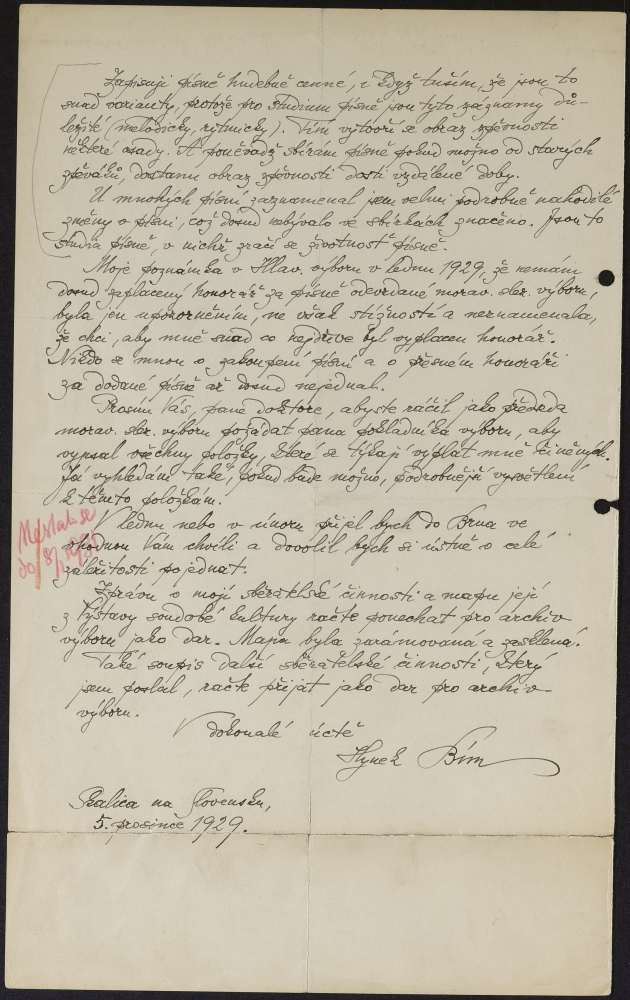 Zapisuji písně hudebně cenné, i když tuším, že jsou to
snad varianty, protože pro studium písně jsou tyto záznamy dů-
ležité (melodicky, rytmicky). Tím vytvoří se obraz zpěvnosti
některé osady. A poněvadž sbírám písně pokud možno od starých
zpěváků, dostanu obraz zpěvnosti dosti vzdálené doby.
U mnohých písní zaznamenal jsem velmi podrobně nahodilé
změny v písni, což dosud nebývalo ve sbírkách značeno. Jsou to
studia písně, v nichž zračí se životnost písně.
Moje poznámka v Hlav. výboru v lednu 1929, že nemám
dosud zaplacený honorář za písně odevzdané morav. slez. výboru,
byla jen upozorněním, ne však stížností a neznamenala,
že chci, aby mně snad co nejdříve byl vyplacen honorář.
Nikdo se mnou o zakoupení písní a o přesném honoráři
za dodané písně až dosud nejednal.
Prosím Vás, pane doktore, abyste ráčil jako předseda
morav. slez. výboru požádat pana pokladníka výboru, aby
vypsal všechny položky, které se týkají výplat mně činěných.
Já vyhledám také, pokud bude možno, podrobnější vysvětlení
k těmto položkám.
V lednu nebo v únoru přijel bych do Brna ve
vhodnou Vám chvíli a dovolil bych si ústně o celé
záležitosti pojednat.
Zprávu o mojí sběratelské činnosti a mapu její
z Výstavy soudobé kultury račte ponechat pro archiv
výboru jako dar. Mapa byla zarámovaná a zasklená.
Také soupis další sběratelské činnosti, který
jsem poslal, račte přijat jako dar pro archiv
výboru.
V dokonalé úctě
Hynek Bím
Skalica na Slovensku,
5. prosince 1929.